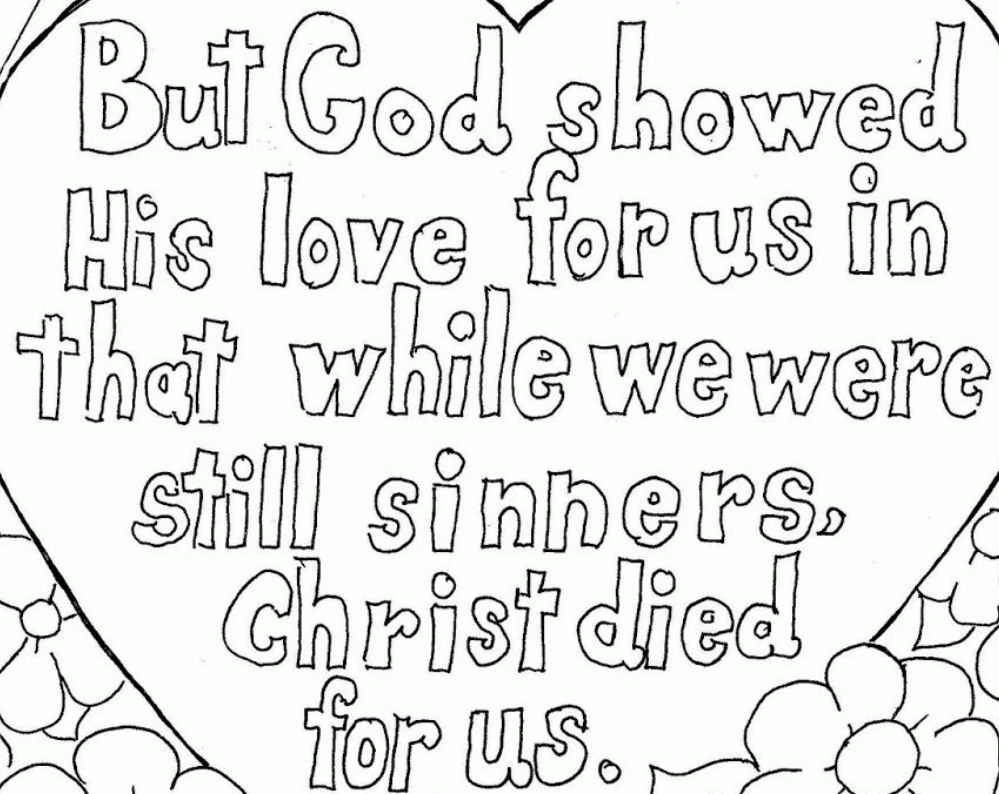 But God showed
His love for us in
that while we were
still sinners,
Christ died
for us.